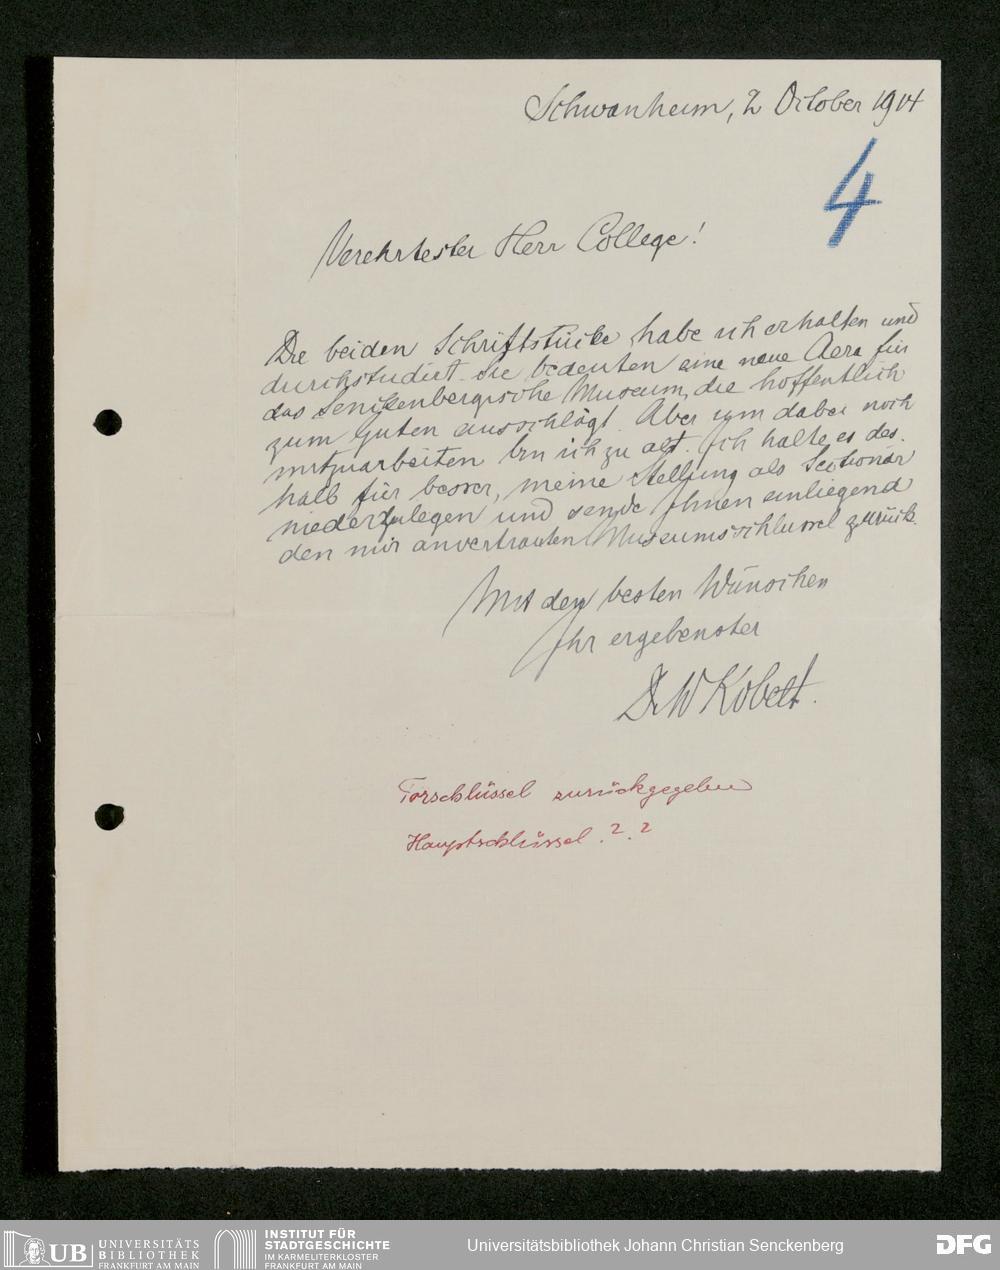 Schwanheim, 2 October 1914
4
Verehrtester Herr College!
Die beiden Schriftstücke habe ich erhalten und
durchstudirt. Sie bedeuten eine neue Aera für
das Senckenbergische Museum, die hoffentlich
zum Guten ausschlägt. Aber um dabei noch
mitzuarbeiten bin ich zu alt. Ich halte es des-
halb für besser, meine Stellung als Sectionär
niederzulegen und sende Ihnen einliegend
den mir anvertrauten Museumsschlüssel zurück.
Mit den besten Wünschen
Ihr ergebenster
Dr W Kobelt.
Torschlüssel zurückgegeben
Hauptschlüssel. ? . ?
UB UNIVERSITÄTS
BIBLIOTHEK
FRANKFURT AM MAIN
INSTITUT FÜR
STADTGESCHICHTE
IM KARMELITERKLOSTER
FRANKFURT AM MAIN
Universitätsbibliothek Johann Christian Senckenberg
DFG